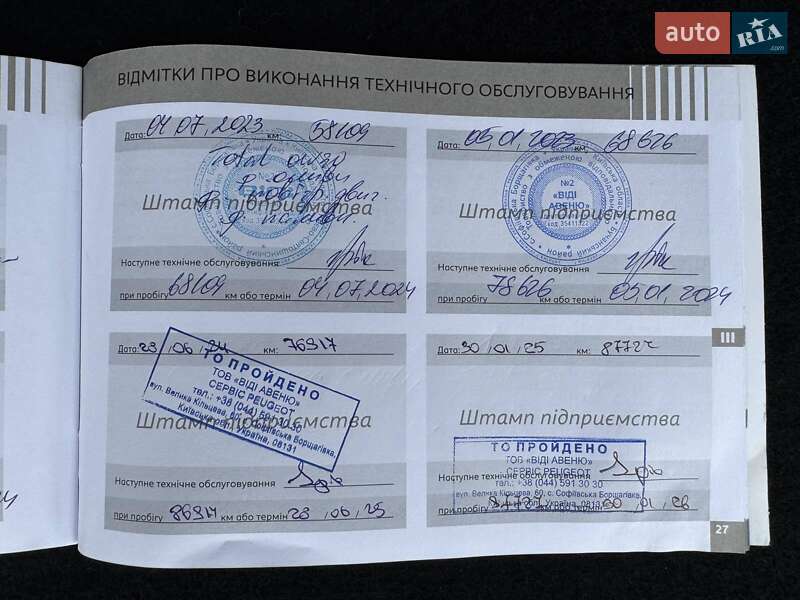 auto RIA.com
ВІДМІТКИ ПРО ВИКОНАННЯ ТЕХНІЧНОГО ОБСЛУГОВУВАННЯ
Дата: 04.07.2023 км: 58109
Штамп підприємства
Наступне технічне обслуговування
при пробігу 68109 км або термін 04.07.2024
Дата: 05.01.2023 км: 68626
№2
«ВІДІ
АВЕНЮ»
Штамп підприємства
Наступне технічне обслуговування
при пробігу 78626 км або термін 05.01.2024
Дата: 23.06.24 км: 76917
ТО ПРОЙДЕНО
ТОВ «ВІДІ АВЕНЮ»
СЕРВІС PEUGEOT
тел.: +38 (044) 591 30 30
вул. Велика Кільцева, 60, с. Софіївська Борщагівка,
Київська обл., Україна, 08131
Штамп підприємства
Наступне технічне обслуговування
при пробігу 86917 км або термін 23.06.25
Дата: 30.01.25 км: 87727
Штамп підприємства
ТО ПРОЙДЕНО
ТОВ «ВІДІ АВЕНЮ»
СЕРВІС PEUGEOT
Наступне технічне обслуговування
тел.: +38 (044) 591 30 30
вул. Велика Кільцева, 60, с. Софіївська Борщагівка,
при пробігу 97727 км або термін 30.01.26
III
27